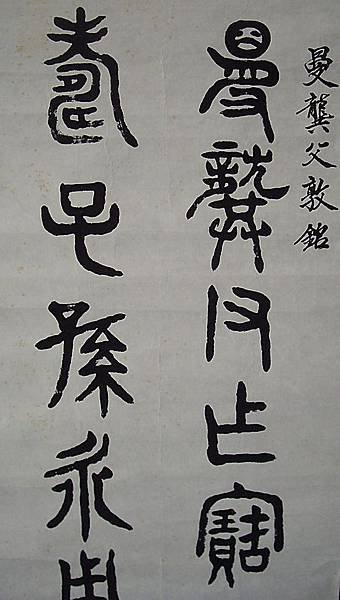 曼龔父敦銘
曼龔父乍寶
壽子孫永用